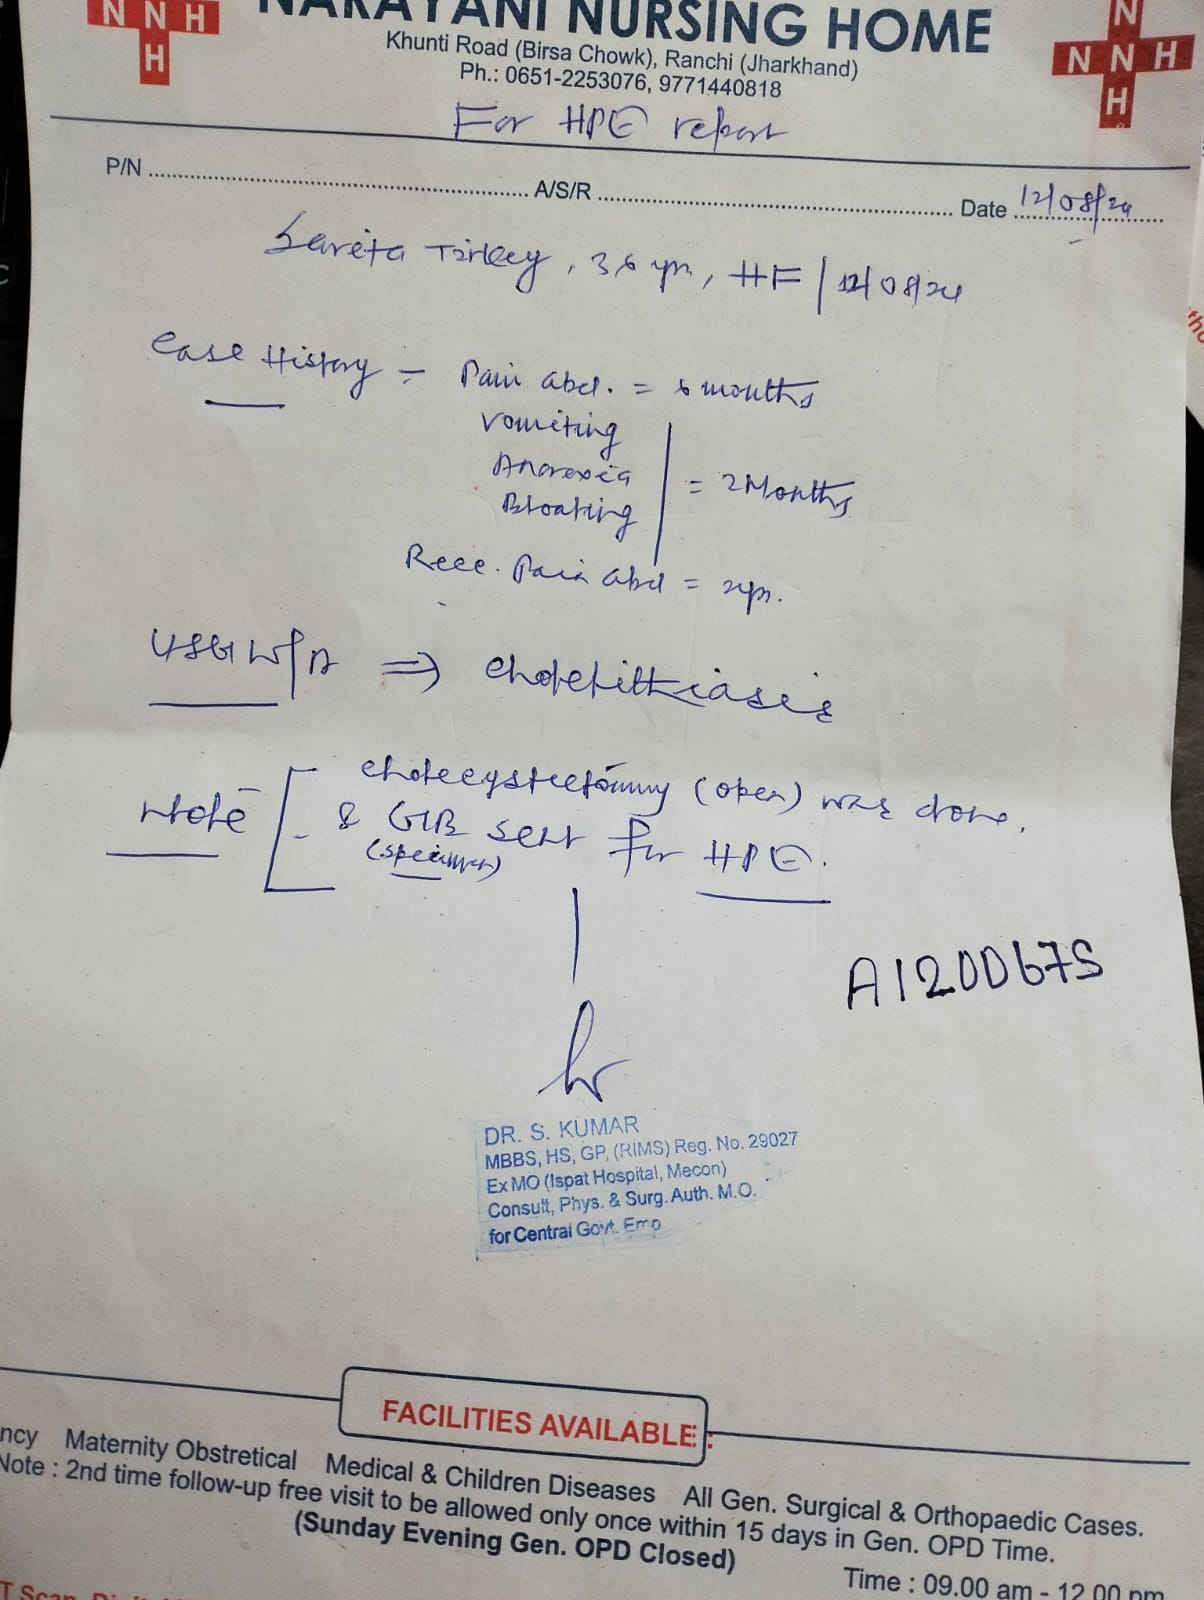 N N H
H
NARAYANI NURSING HOME
N
N N H
H
Khunti Road (Birsa Chowk), Ranchi (Jharkhand)
Ph.: 0651-2253076, 9771440818
For HPE report
P/N ........ A/S/R ........ Date 12/08/24
Sarita Tirkey, 36 yrs, HF / 12/08/24
Case History - Pain abd. = 6 months
Vomiting
Anorexia = 2 Months
Bloating
Rece. Pain abd = 2yrs.
USG W/A ⇒ Cholelithiasis
Note [ Cholecystectomy (open) was done,
& GB sent for HPE.
(specimen)
A1200675
DR. S. KUMAR
MBBS, HS, GP, (RIMS) Reg. No. 29027
Ex MO (Ispat Hospital, Mecon)
Consult, Phys. & Surg. Auth. M.O.
for Central Govt. Emp
FACILITIES AVAILABLE :
ncy Maternity Obstretical Medical & Children Diseases All Gen. Surgical & Orthopaedic Cases.
Note : 2nd time follow-up free visit to be allowed only once within 15 days in Gen. OPD Time.
(Sunday Evening Gen. OPD Closed)
Time : 09.00 am - 12.00 pm
T Scan